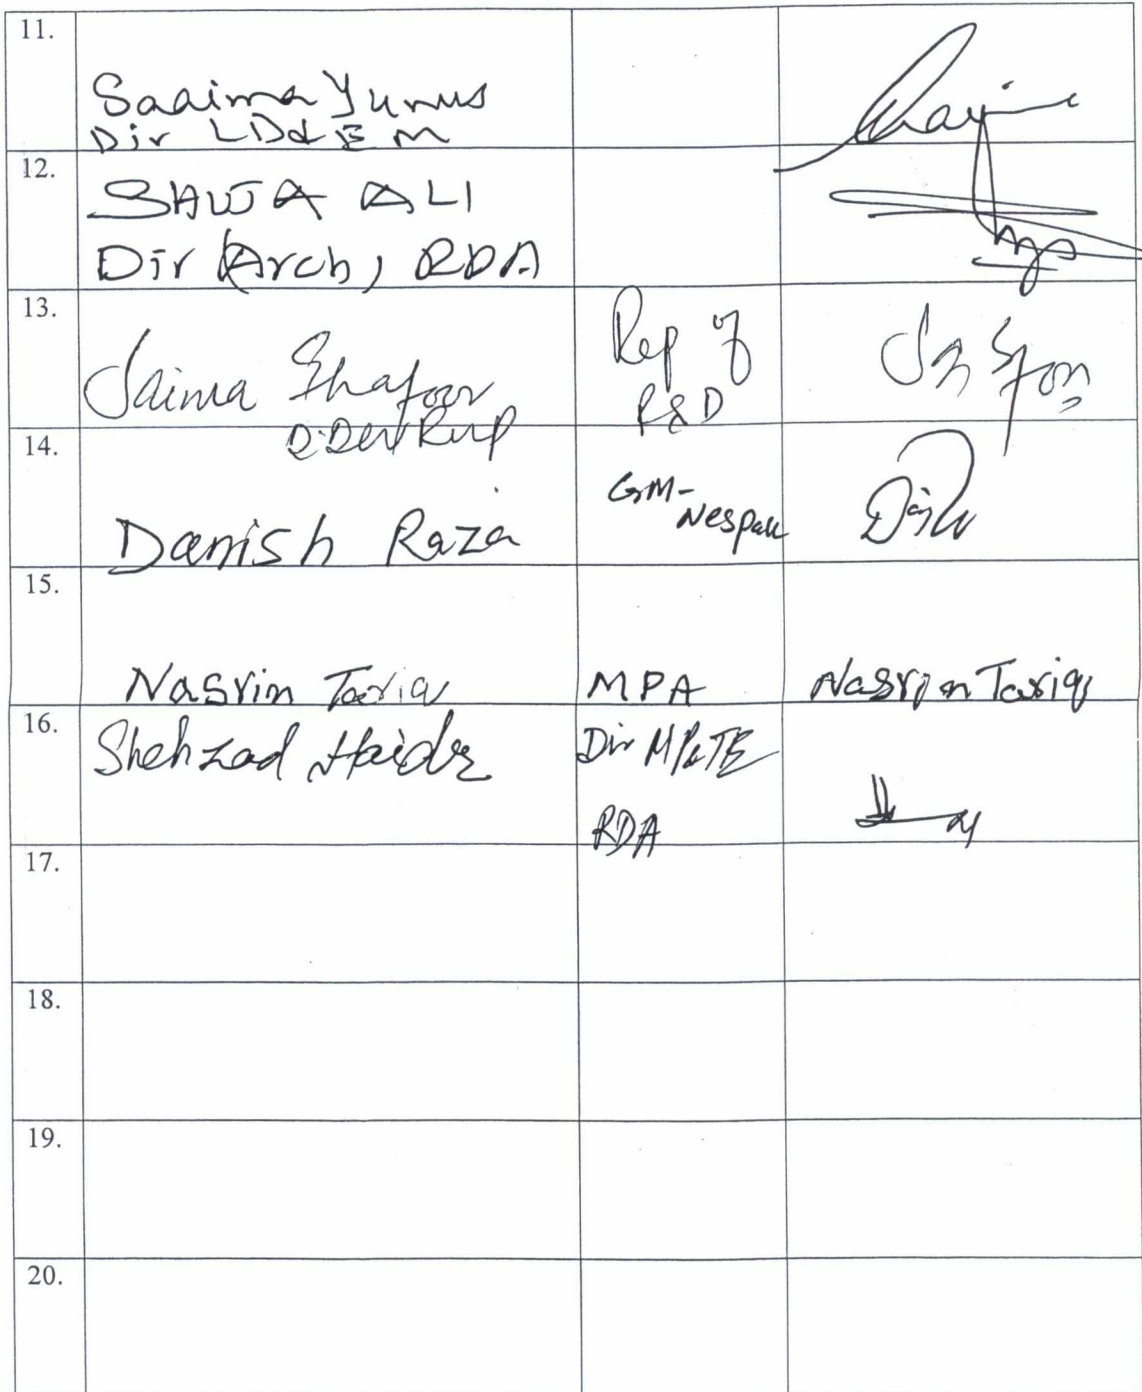 11.
Saaima Yunus
Dir LD&EM
12.
SHUJA ALI
Dir (Arch) RDA
13.
Saima Ghafoor
D. Dev Rwp
Rep of
P&D
14.
Danish Raza
GM-
Nespak
15.
Nasrin Tariq
MPA
Nasrin Tariq
16.
Shehzad Haider
Dir MP&TE
RDA
17.
18.
19.
20.